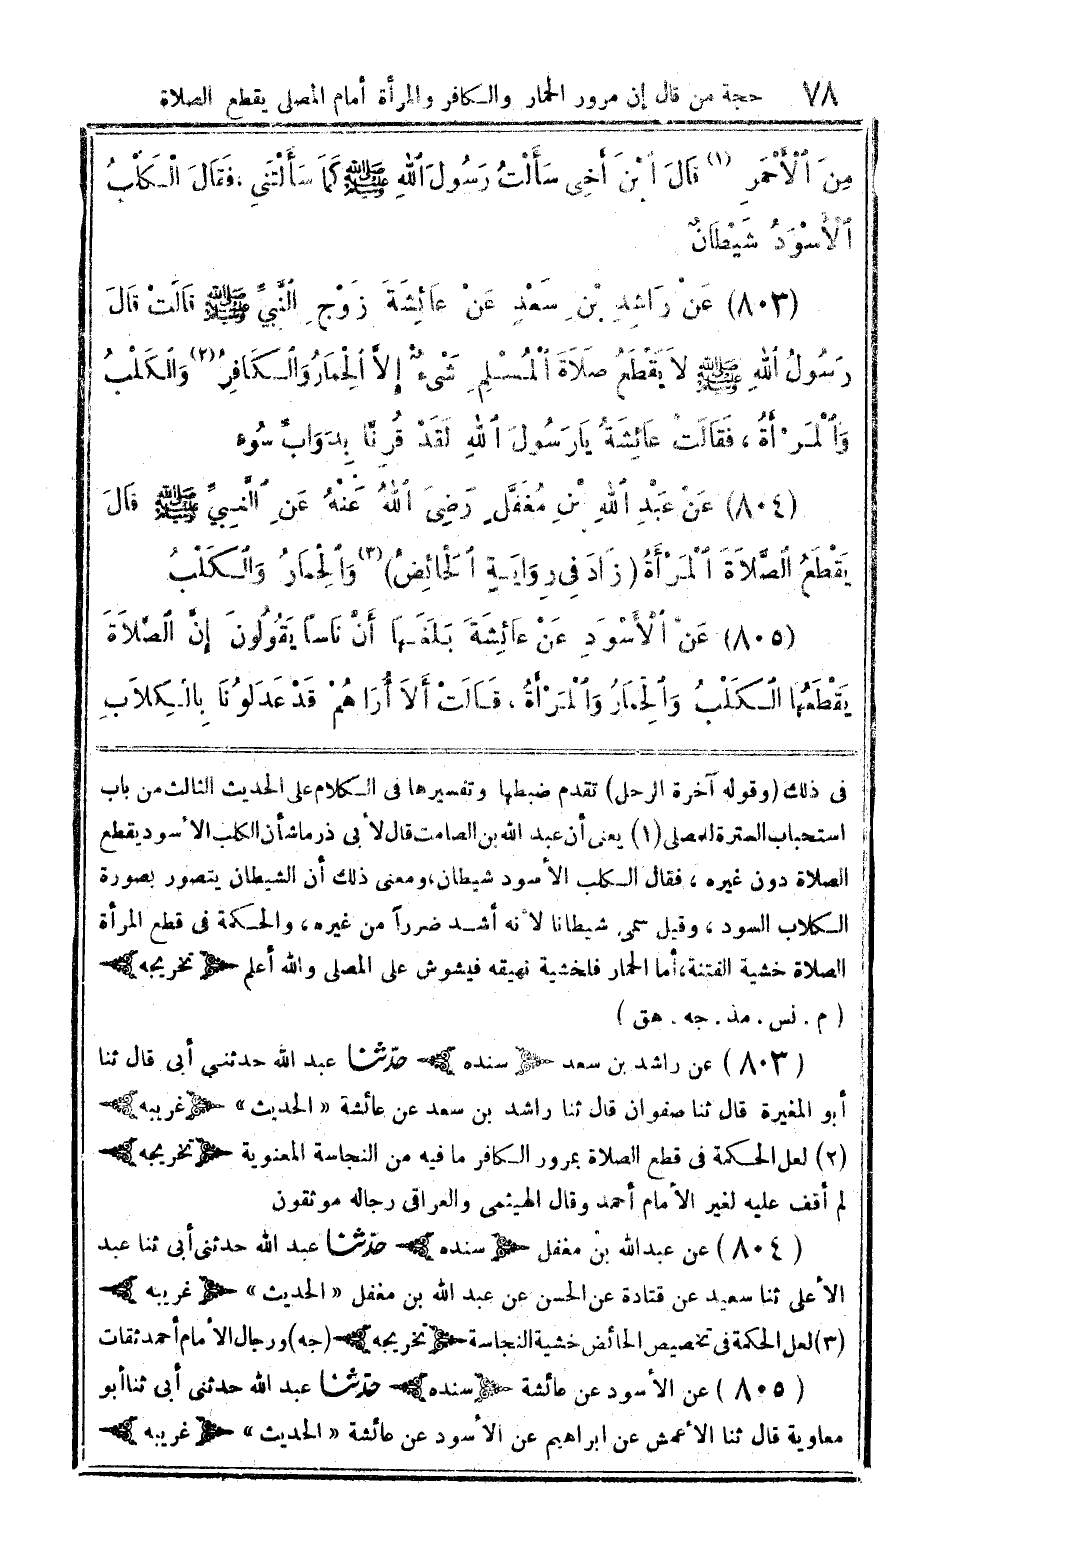 ٧٨ حجة من قال إن مرور الحمار والكافر والمرأة أمام المصلى يقطع الصلاة
مِنَ ٱلْأَحْمَرِ (١) قَالَ ٱبْنَ أَخِى سَأَلْتُ رَسُولَ ٱللهِ ﷺ كَمَا سَأَلْتَنِى ، فَقَالَ الْكَلْبُ
ٱلْأَسْوَدُ شَيْطَانٌ
(٨٠٣) عَنْ رَاشِدِ بْنِ سَعْدٍ عَنْ عَائِشَةَ زَوْجِ النَّبِيِّ ﷺ قَالَتْ قَالَ
رَسُولُ ٱللهِ ﷺ لاَ يَقْطَعُ صَلاَةَ ٱلْمُسْلِمِ شَىْءٌ إِلاَّ ٱلْحِمَارُ وَٱلْكَافِرُ (٢) وَٱلْكَلْبُ
وَٱلْمَرْأَةُ ، فَقَالَتْ عَائِشَةُ يَارَسُولَ ٱللهِ لَقَدْ قُرِنَّا بِدَوَابِّ سُوءٍ
(٨٠٤) عَنْ عَبْدِ ٱللهِ بْنِ مُغَفَّلٍ رَضِىَ ٱللهُ عَنْهُ عَنِ ٱلنَّبِيِّ ﷺ قَالَ
يَقْطَعُ ٱلصَّلاَةَ ٱلْمَرْأَةُ ( زَادَ فِى رِوَايَةٍ ٱلْحَائِضُ ) (٣) وَٱلْحِمَارُ وَٱلْكَلْبُ
(٨٠٥) عَنْ ٱلْأَسْوَدِ عَنْ عَائِشَةَ بَلَغَهَا أَنَّ نَاسًا يَقُولُونَ إِنَّ ٱلصَّلاَةَ
يَقْطَعُهَا ٱلْكَلْبُ وَٱلْحِمَارُ وَٱلْمَرْأَةُ ، قَالَتْ أَلاَ أُرَاهُمْ قَدْ عَدَلُونَا بِالْكِلاَبِ
فى ذلك (وقوله آخرة الرحل) تقدم ضبطها وتفسيرها فى الكلام على الحديث الثالث من باب
استحباب السترة للمصلى (١) يعنى أن عبد الله بن الصامت قال لأبى ذر ماشأن الكلب الأسود يقطع
الصلاة دون غيره ، فقال الكلب الأسود شيطان، ومعنى ذلك أن الشيطان يتصور بصورة
الكلاب السود ، وقيل سمى شيطانا لأنه أشد ضرراً من غيره ، والحكمة فى قطع المرأة
الصلاة خشية الفتنة، أما الحمار فلخشية نهيقه فيشوش على المصلى والله أعلم ﴿تخريجه﴾
( م . نس . مذ . جه . هق )
( ٨٠٣ ) عن راشد بن سعد ﴿سنده﴾ حدّثنا عبد الله حدثنى أبى قال ثنا
أبو المغيرة قال ثنا صفوان قال ثنا راشد بن سعد عن عائشة « الحديث » ﴿غريبه﴾
(٢) لعل الحكمة فى قطع الصلاة بمرور الكافر ما فيه من النجاسة المعنوية ﴿تخريجه﴾
لم أقف عليه لغير الأمام أحمد وقال الهيثمى والعراقى رجاله موثقون
( ٨٠٤ ) عن عبدالله بن مغفل ﴿سنده﴾ حدّثنا عبد الله حدثنى أبى ثنا عبد
الأعلى ثنا سعيد عن قتادة عن الحسن عن عبد الله بن مغفل « الحديث » ﴿غريبه﴾
(٣) لعل الحكمة فى تخصيص الحائض خشية النجاسة ﴿تخريجه﴾ (جه) ورجال الأمام أحمد ثقات
( ٨٠٥ ) عن الأسود عن عائشة ﴿سنده﴾ حدّثنا عبد الله حدثنى أبى ثنا أبو
معاوية قال ثنا الأعمش عن ابراهيم عن الأسود عن عائشة « الحديث » ﴿غريبه﴾